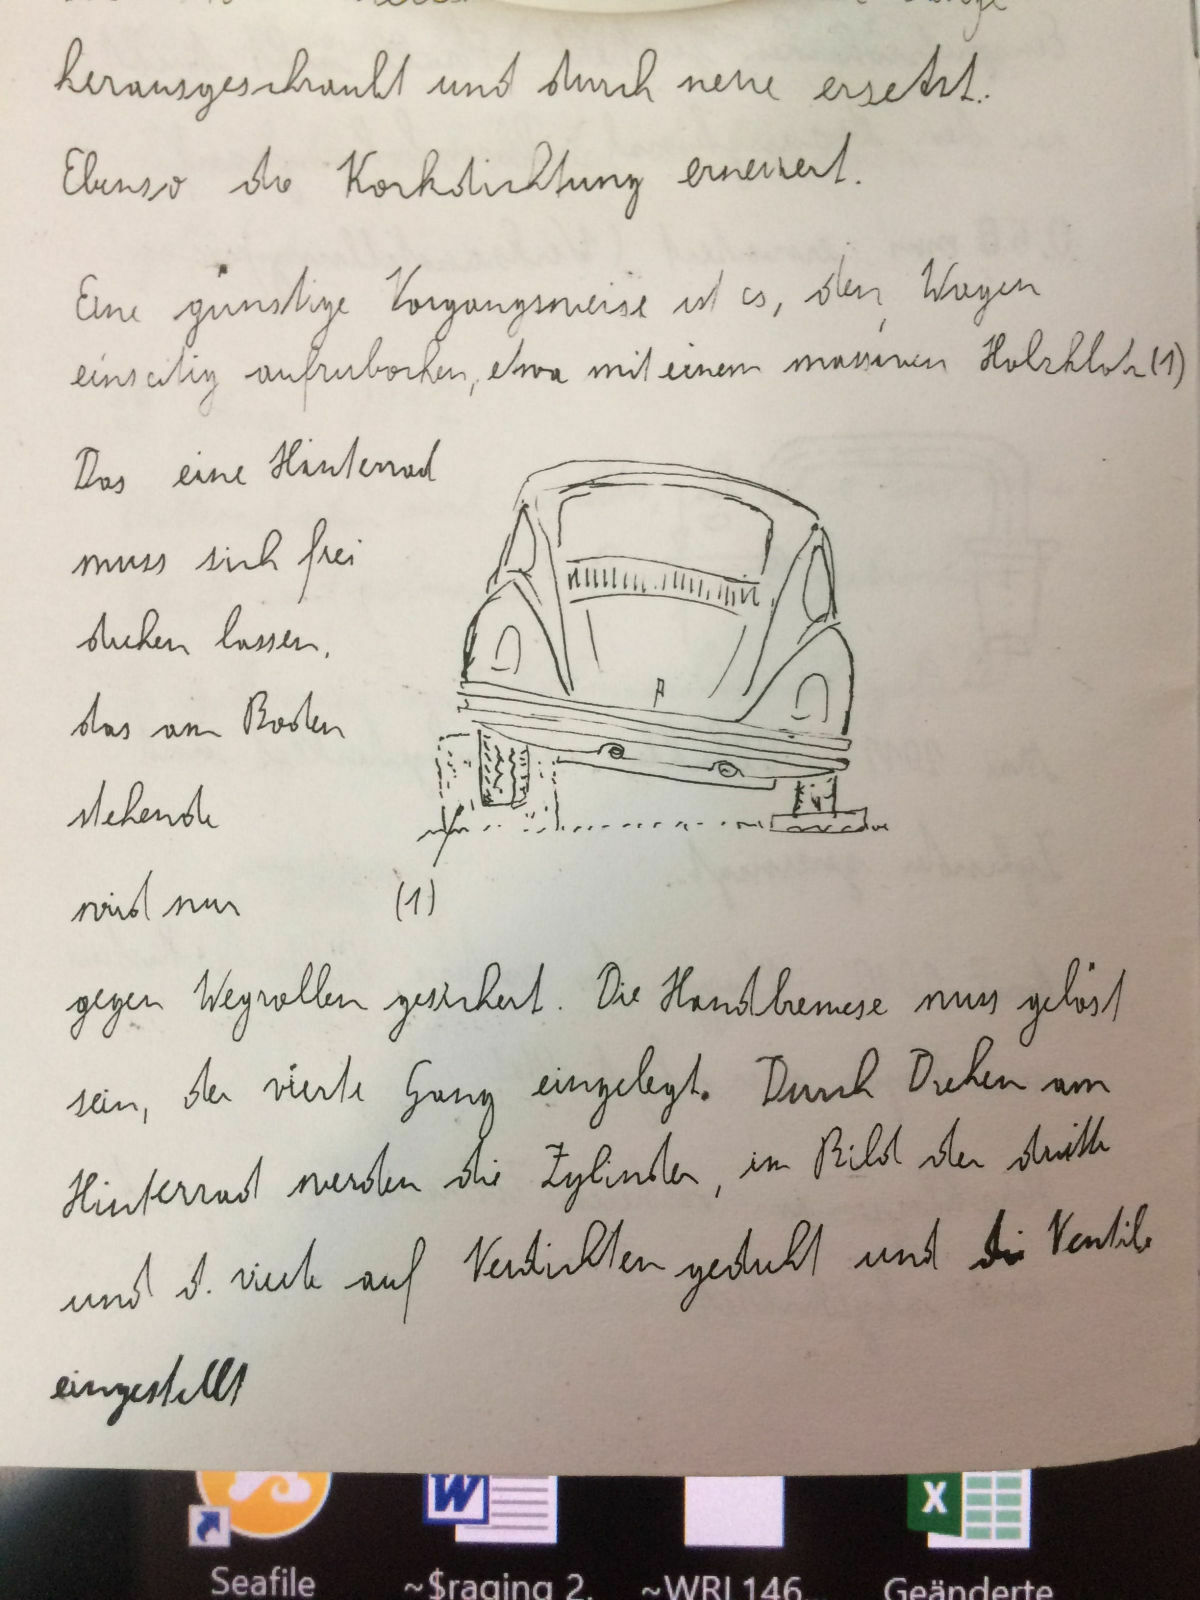 herausgeschraubt und durch neue ersetzt.
Ebenso die Korkdichtung erneuert.
Eine günstige Vorgangsweise ist es, den Wagen
einseitig aufzubocken, etwa mit einem massiven Holzklotz (1)
Das eine Hinterrad
muss sich frei
drehen lassen,
das am Boden
stehende
wird nur
(1)
gegen Wegrollen gesichert. Die Handbremese muss gelöst
sein, der vierte Gang eingelegt. Durch Drehen am
Hinterrad werden die Zylinder, im Bild der dritte
und d. vierte auf Verdichten gedreht und die Ventile
eingestellt
W
X
Seafile
~$raging 2.
~WRL146...
Geänderte